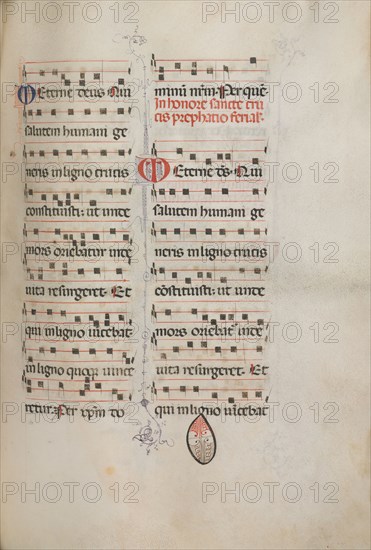 Eterne deus Qui
salutem humani ge
neris in ligno crucis
constituisti: ut unde
mors oriebatur inde
uita resurgeret. Et
qui in ligno uincebat
in ligno quoqꝫ uince
retur. Per xp̄m do
minū nr̄m. Per quē
In honore sancte cru
cis prephatio ferial
Eterne ds̄ Qui
salutem humani ge
neris in ligno crucis
cōstituisti: ut unde
mors oriebat᷑ inde
uita resurgeret. Et
qui in ligno uīcebat
PHOTO 12